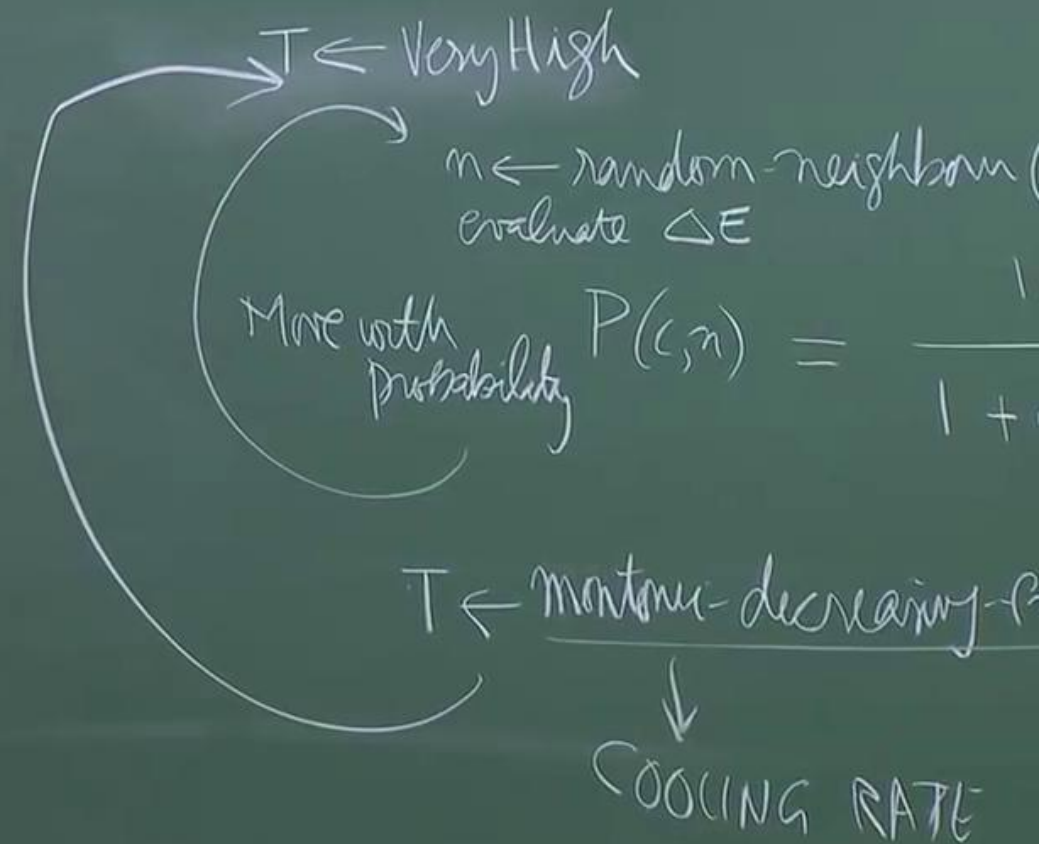 T ← Very High
n ← random-neighbour (
evaluate ΔE
Move with
probability
P(c,n) = 1
1 +
T ← montonic-decreasing-
COOLING RATE